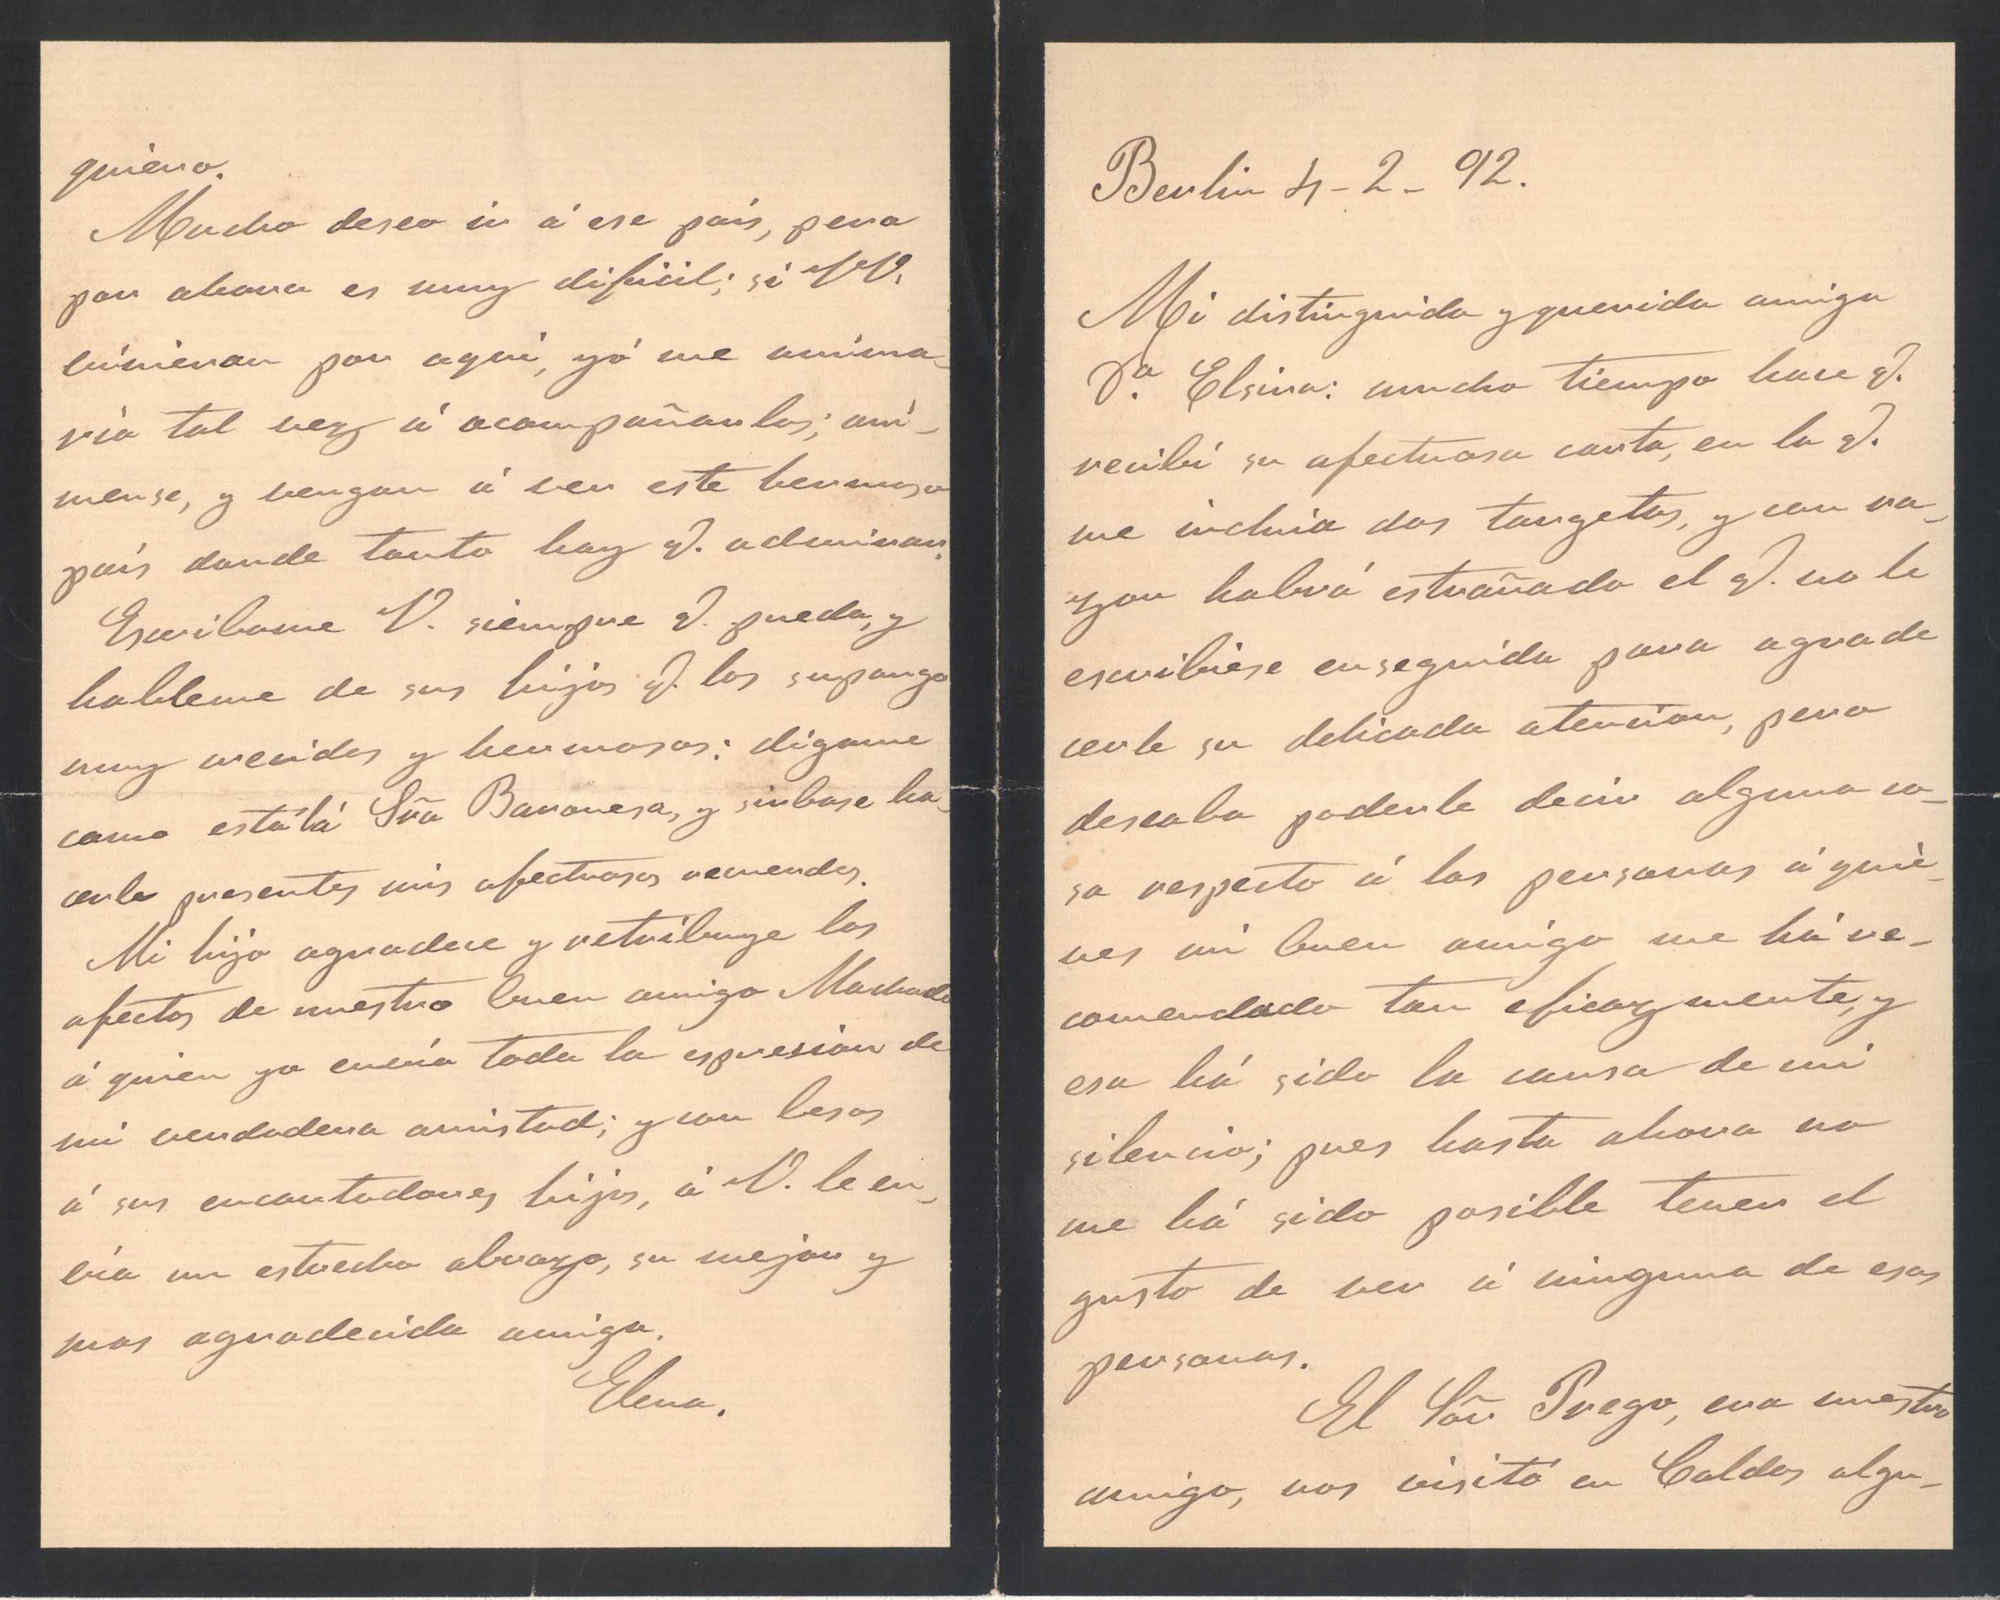 Berlin 4-2-92.
Mi distinguida y querida amiga
Dª. Elsina: mucho tiempo hace q.
recibí su afectuosa carta, en la q.
me incluia dos targetas, y con ra-
zon habrá estrañado el q. no le
escribiese enseguida para agrade
cerle su delicada atencion, pero
deseaba poderle decir alguna co-
sa respecto á las personas á quie-
nes mi buen amigo me há re-
comendado tan eficazmente, y
esa há sido la causa de mi
silencio; pues hasta ahora no
me há sido posible tener el
gusto de ver á ninguna de esas
personas.
El Sõr Prego, era nuestro
amigo, nos visitó en Caldas algu-
quiero.
Mucho deseo ir á ese país, pero
por ahora es muy dificil; si VV.
vinieran por aqui, yó me anima-
ria tal vez á acompañarlos; aní-
mense, y vengan á ver este hermoso
país donde tanto hay q. admirar.
Escribame V. siempre q. pueda, y
hableme de sus hijos q. los supongo
muy crecidos y hermosos: digame
como está lá Sra Baronesa, y sirbase ha-
cerle presentes mis afectuosos recuerdos.
Mi hijo agradece y retribuye los
afectos de nuestro buen amigo Machado
á quien yo envio toda la espresion de
mi verdadera amistad; y con besos
á sus encantadores hijos, á V. le en-
via un estrecho abrazo, su mejor y
mas agradecida amiga.
Elena.